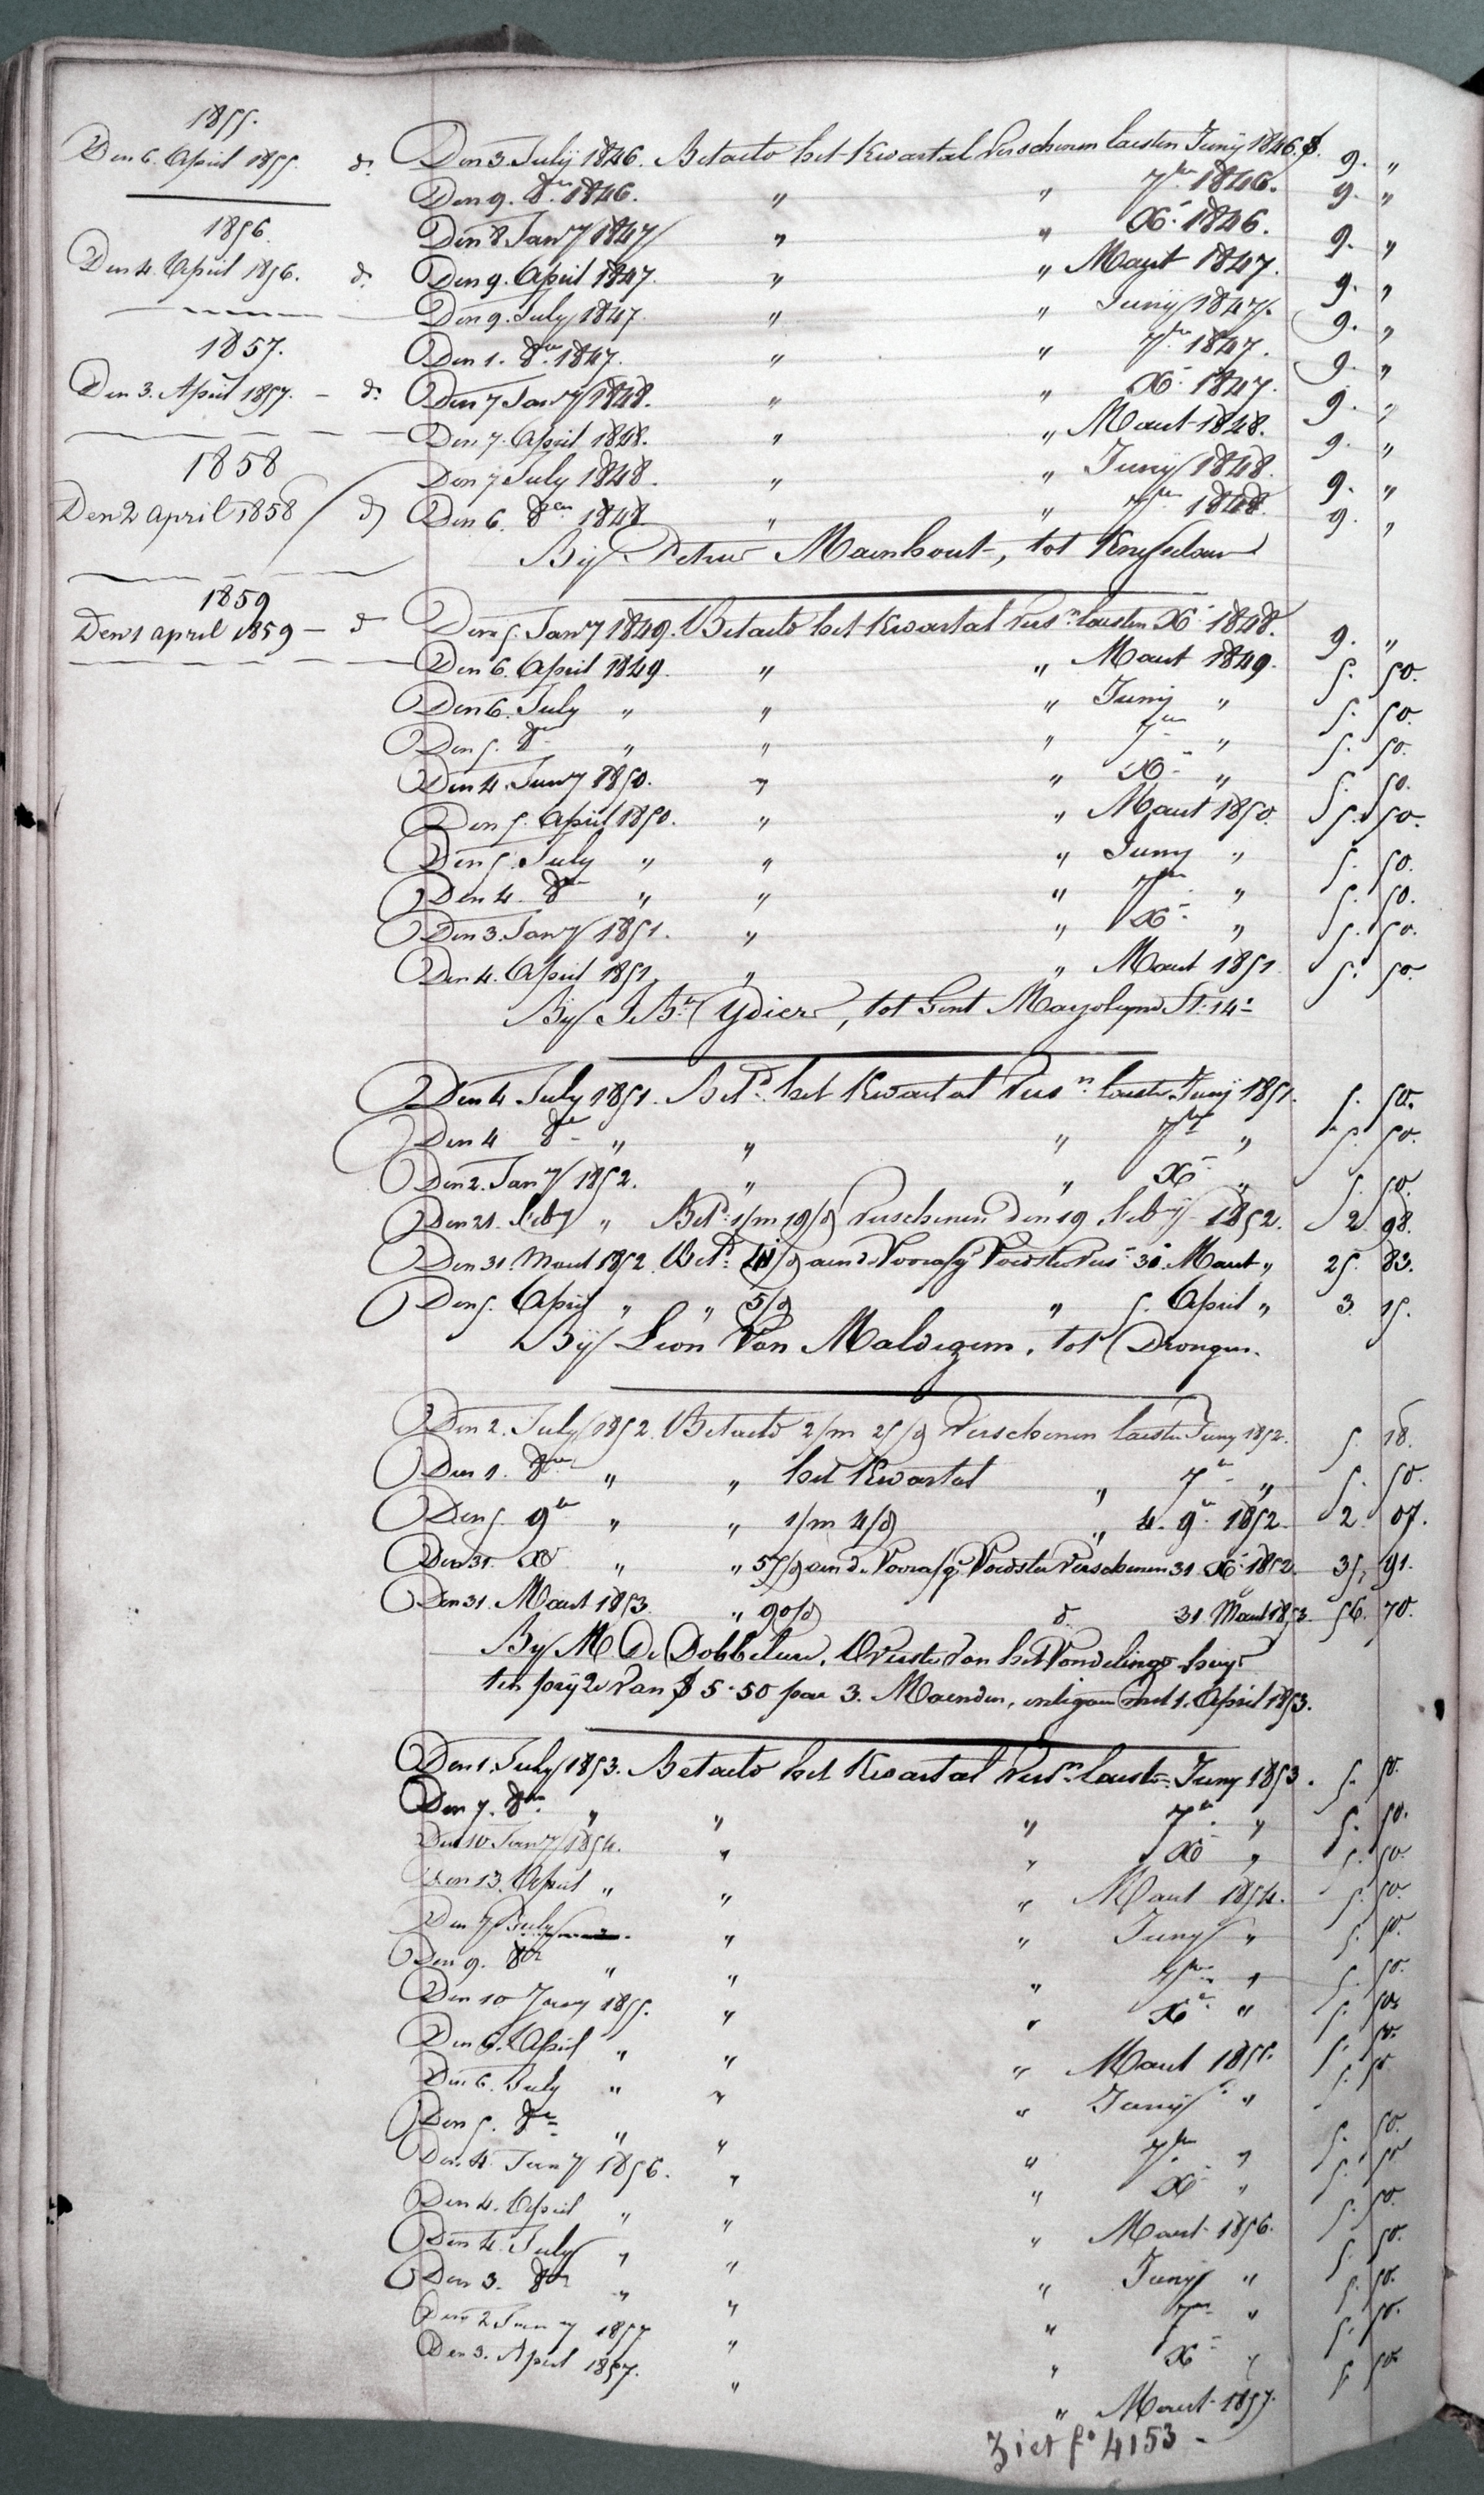 1855.
Den 6. April 1855. d.
1856.
Den 4. April 1856. d.
1857.
Den 3. April 1857. - d.
1858
Den 2 april 1858 d
1859
Den 1 april 1859 - d
Den 3. July 1846. Betaeld het Kwartal Verschenen laesten Junij 1846. 9. "
Den 9. 8er 1846. " " 7ber 1846. 9. "
Den 8 Jany 1847 " " Xr 1846. 9. "
Den 9. April 1847. " " Maart 1847. 9. "
Den 9. July 1847. " " Junij 1847. 9. "
Den 1. 8er 1847. " " 7ber 1847. 9. "
Den 7 Jany 1848. " " Xr 1847. 9. "
Den 7. April 1848. " " Maart 1848. 9. "
Den 7 July 1848. " " Junij 1848. 9. "
Den 6. 8er 1848. " " 7ber 1848. 9. "
Bij Petrus Mainhout, tot
Den 5. Jany 1849. Betaeld het Kwartal Versn laesten Xr 1848. 9. "
Den 6. April 1849. " " Maart 1849. 5. 50.
Den 6. July " " " Junij " 5. 50.
Den 5. 8er " " " 7ber " 5. 50.
Den 4. Jany 1850. " " Xr " 5. 50.
Den 5. April 1850. " " Maart 1850. 5. 50.
Den 5. July " " " Juny " 5. 50.
Den 4. 8er " " " 7ber " 5. 50.
Den 3. Jany 1851. " " Xr " 5. 50.
Den 4. April 1851. " " Maart 1851 5. 50.
Bij J. Bte Ydier, tot Gent St. 14
Den 4 July 1851. Betd het Kwartal Versn laesten Junij 1851. 5. 50.
Den 4 8er " " " 7ber " 5. 50.
Den 2. Jany 1852. " " Xr " 5. 50.
Den 21. Feby " Betd 1/m 19/d Verschenen den 19 Feby 1852. 2. 98.
Den 31 Maart 1852. Betd 41/d aen d. Voorafg. Voedster Vers 31. Maart " 25. 83.
Den 5. April " " 5/d " 5. April " 3. 15.
Bij Leon Van Maldegem, tot Drongen.
Den 2. July 1852. Betaeld 2/m 25/d Verschenen laesten Juny 1852. 5. 18.
Den 1. 8er " " het Kwartal " 7r " 5. 50.
Den 5. 9r " " 1/m 4/d " 4. 9r 1852. 2. 07.
Den 31. Xr " " 57/d aen d. Voorafg. Voedster Verschenen 31 Xr 1852. 35. 91.
Den 31. Maart 1853. " 90/d d. 31 Maart 1853. 56. 70.
Bij M De Dobbeleire, Overste van het Vondelings huys
ten prijze van 5.50 par 3. Maenden, ingaen met 1. April 1853.
Den 1. July 1853. Betaeld het Kwartal Versn laesten Juny 1853. 5. 50.
Den 7. 8er " " " 7r " 5. 50.
Den 10 Jany 1854. " " Xr " 5. 50.
Den 13. April " " " Maart 1854. 5. 50.
Den 7 July " " Juny " 5. 50.
Den 9. 8er " " " 7ber " 5. 50.
Den 10 Jany 1855. " " Xr " 5. 50.
Den 6. April " " " Maart 1855. 5. 50.
Den 6. July " " " Junij " 5. 50
Den 5. 8er " " " 7ber " 5. 50.
Den 4. Jany 1856. " " Xr " 5. 50.
Den 4. April " " " Maart 1856. 5. 50.
Den 4. July " " " Junij " 5. 50.
Den 3. 8er " " " 7ber " 5. 50.
Den 2 Jany 1857 " " Xr " 5. 50.
Den 3. April 1857. " " Maart 1857. 5. 50.
Ziet fo 4153 -